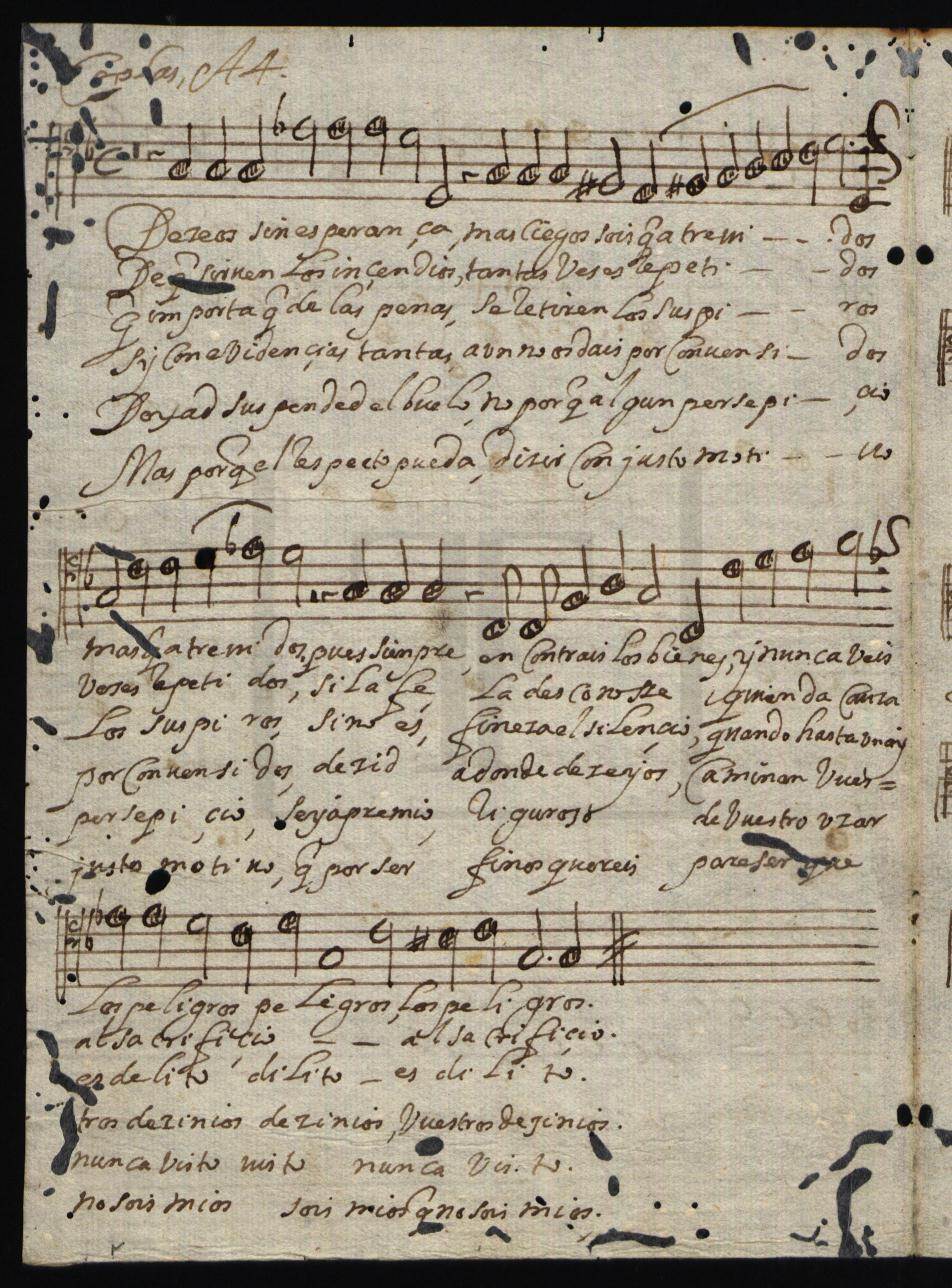 Coplas, A 4.
Dezeos sin esperan ça, mas ciegos sois q̃ atrevi - - . dos
De q̃ sirven Los incendios, tantas Veses Repeti - - dos
q̃ importa q̃ de las penas, se Retiren los suspi - - ros
Sy Con eVidençias tantas, aun no os dais por Convensi - dos
Dexad suspended el buelo, no porq̃ algun persepi - çio
Mas porq̃ el Respecto pueda, dizir Con justo moti - - uo
mas q̃ atrevi dos, pues sienpre, en Contrais los bienes, y nunca Veis
Veses Repeti dos, si La fe La desconosse i quien da Cauza
Los suspi ros, si no es, fineza el silençio, quando hasta un ay
por Convensi dos, dezid adonde dezeyos, Caminan Vues=
persepi çio, seyá premio, Riguroso de Vuestro uzar
justo moti uo, q̃ por ser finos quereis pareser que
Los peligros peLigros, los peligros.
al sacrifiçio - - al sacrifiçio.
es delito diLito - es diLi to.
tros dezinios dezinios, Vuestros dezinios.
nunca Visto visto nunca Vis. to.
no sois mios sois mios q̃ no sois mios.